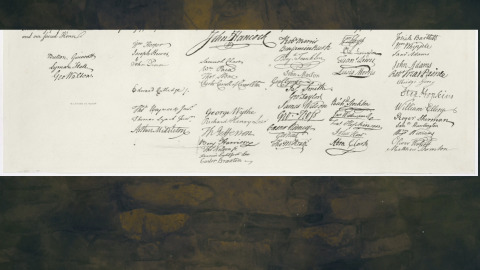 John Hancock
Button Gwinnett
Lyman Hall
Geo Walton
Wm Hooper
Joseph Hewes
John Penn
Edward Rutledge
Thos Heyward Junr
Thomas Lynch Junr
Arthur Middleton
Samuel Chase
Wm Paca
Thos Stone
George Wythe
Richard Henry Lee
Th Jefferson
Benj Harrison
Carter Braxton
Robt Morris
Benjamin Rush
Benj Franklin
John Morton
Geo Clymer
Jas Smith
Geo Taylor
James Wilson
Geo Ross
Caesar Rodney
Geo Read
Tho M:Kean
Lewis Morris
Richd Stockton
Jno Witherspoon
Fras Hopkinson
John Hart
Abra Clark
Josiah Bartlett
Wm Whipple
Saml Adams
John Adams
Robt Treat Paine
Elbridge Gerry
Step Hopkins
William Ellery
Roger Sherman
Wm Williams
Oliver Wolcott
Matthew Thornton